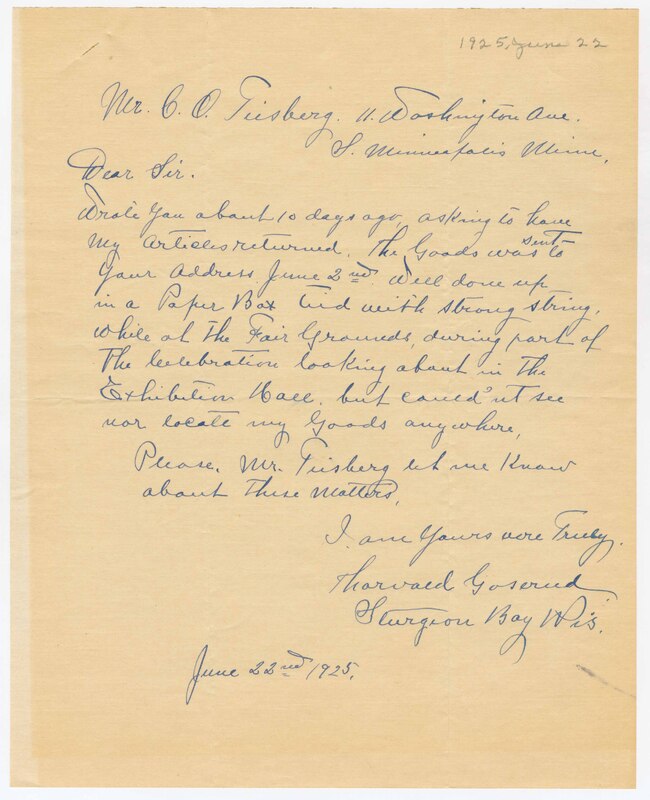 1925, June 22
Mr. C. O. Tiisberg. 11. Washington Ave.
S. Minneapolis Minn,
Dear Sir.
Wrote You about 10 days ago, asking to have
My Articles returned. The Goods was sent to
Your Address June 2nd. Well done up
in a Paper Box Tied with strong string.
while at the Fair Grounds, during part of
The Celebration looking about in the
Exhibition Hall. but could'nt see
nor locate my Goods anywhere,
Please. Mr. Tiisberg let me Know
about These Matters,
I. am Yours vere Truly.
Thorvald Goserud
Sturgeon Bay Wis.
June 22nd 1925.